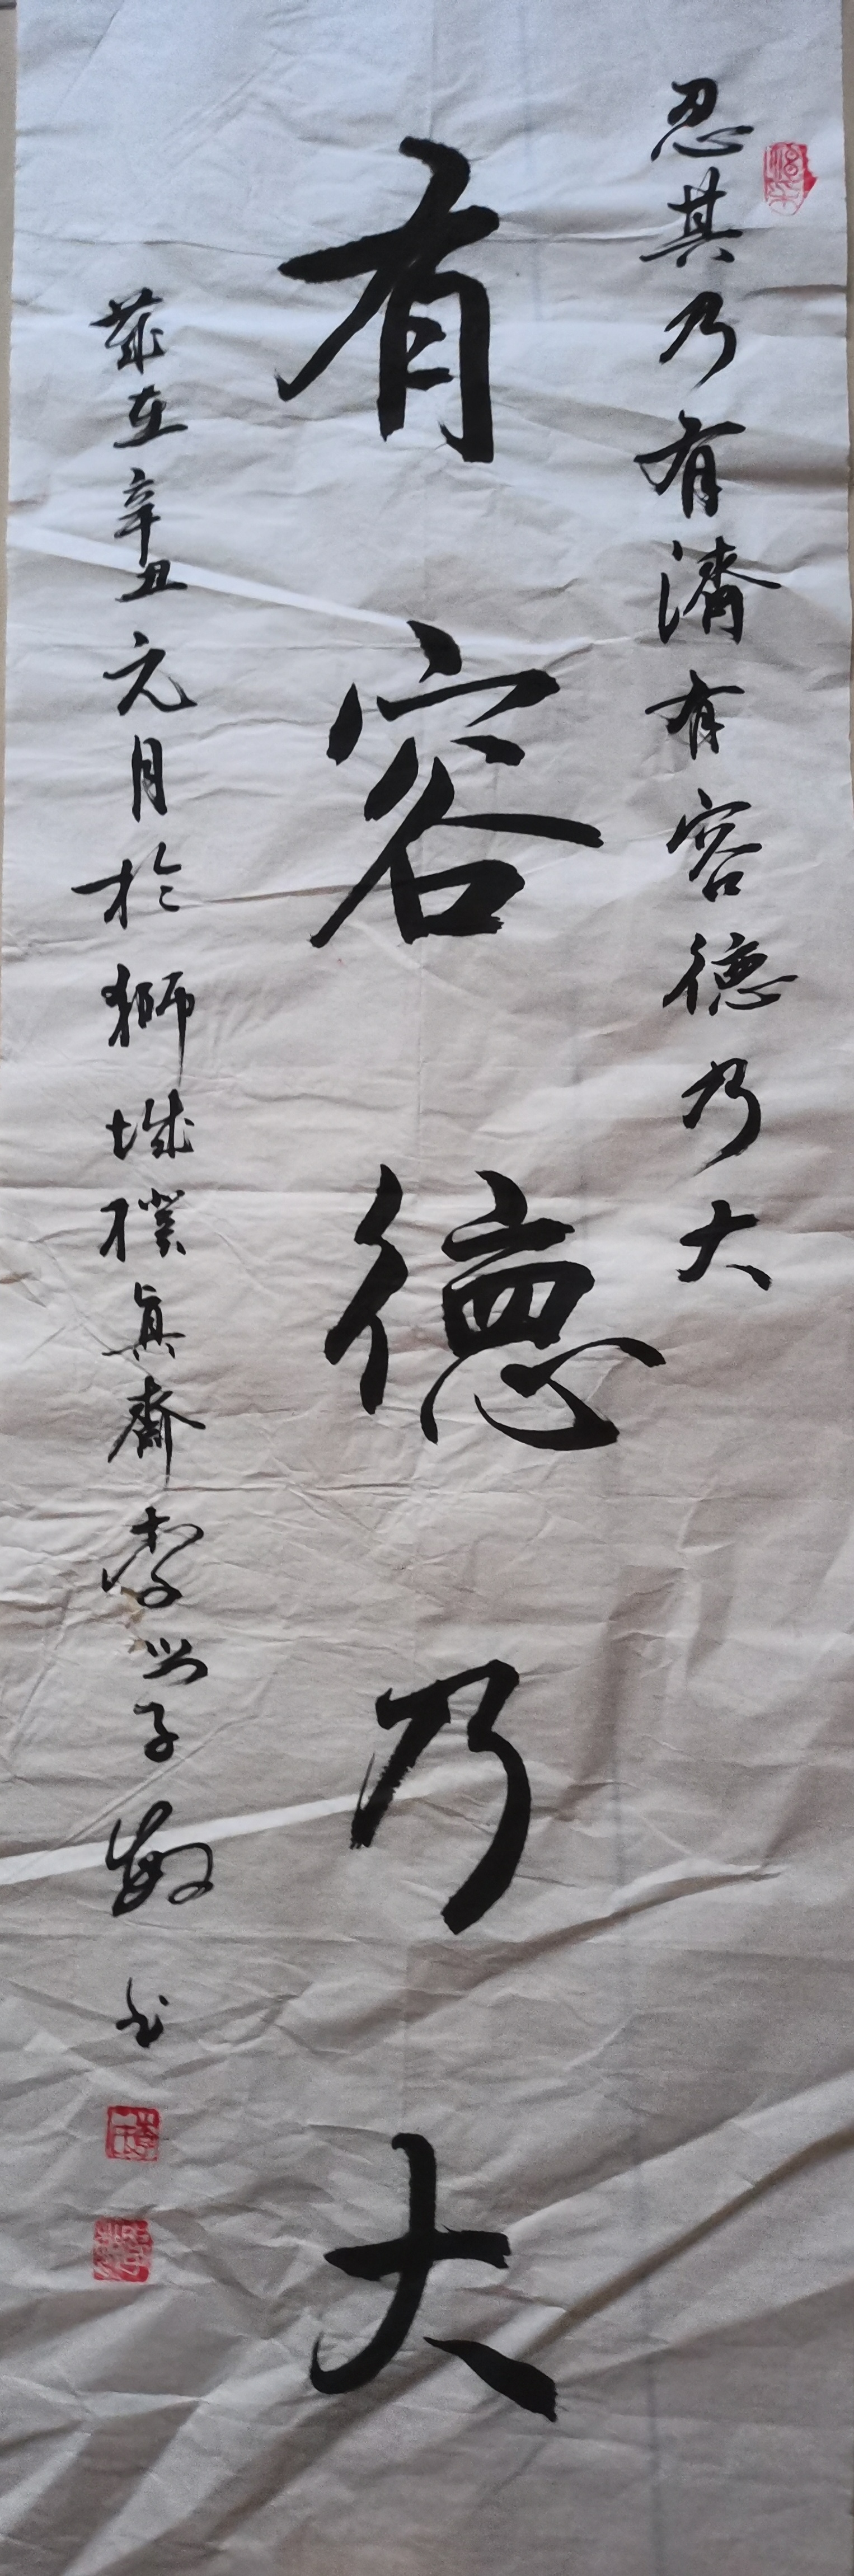 忍其乃有濟有容德乃大
有容德乃大
歲在辛丑元月於獅城樸真齋李學敏书